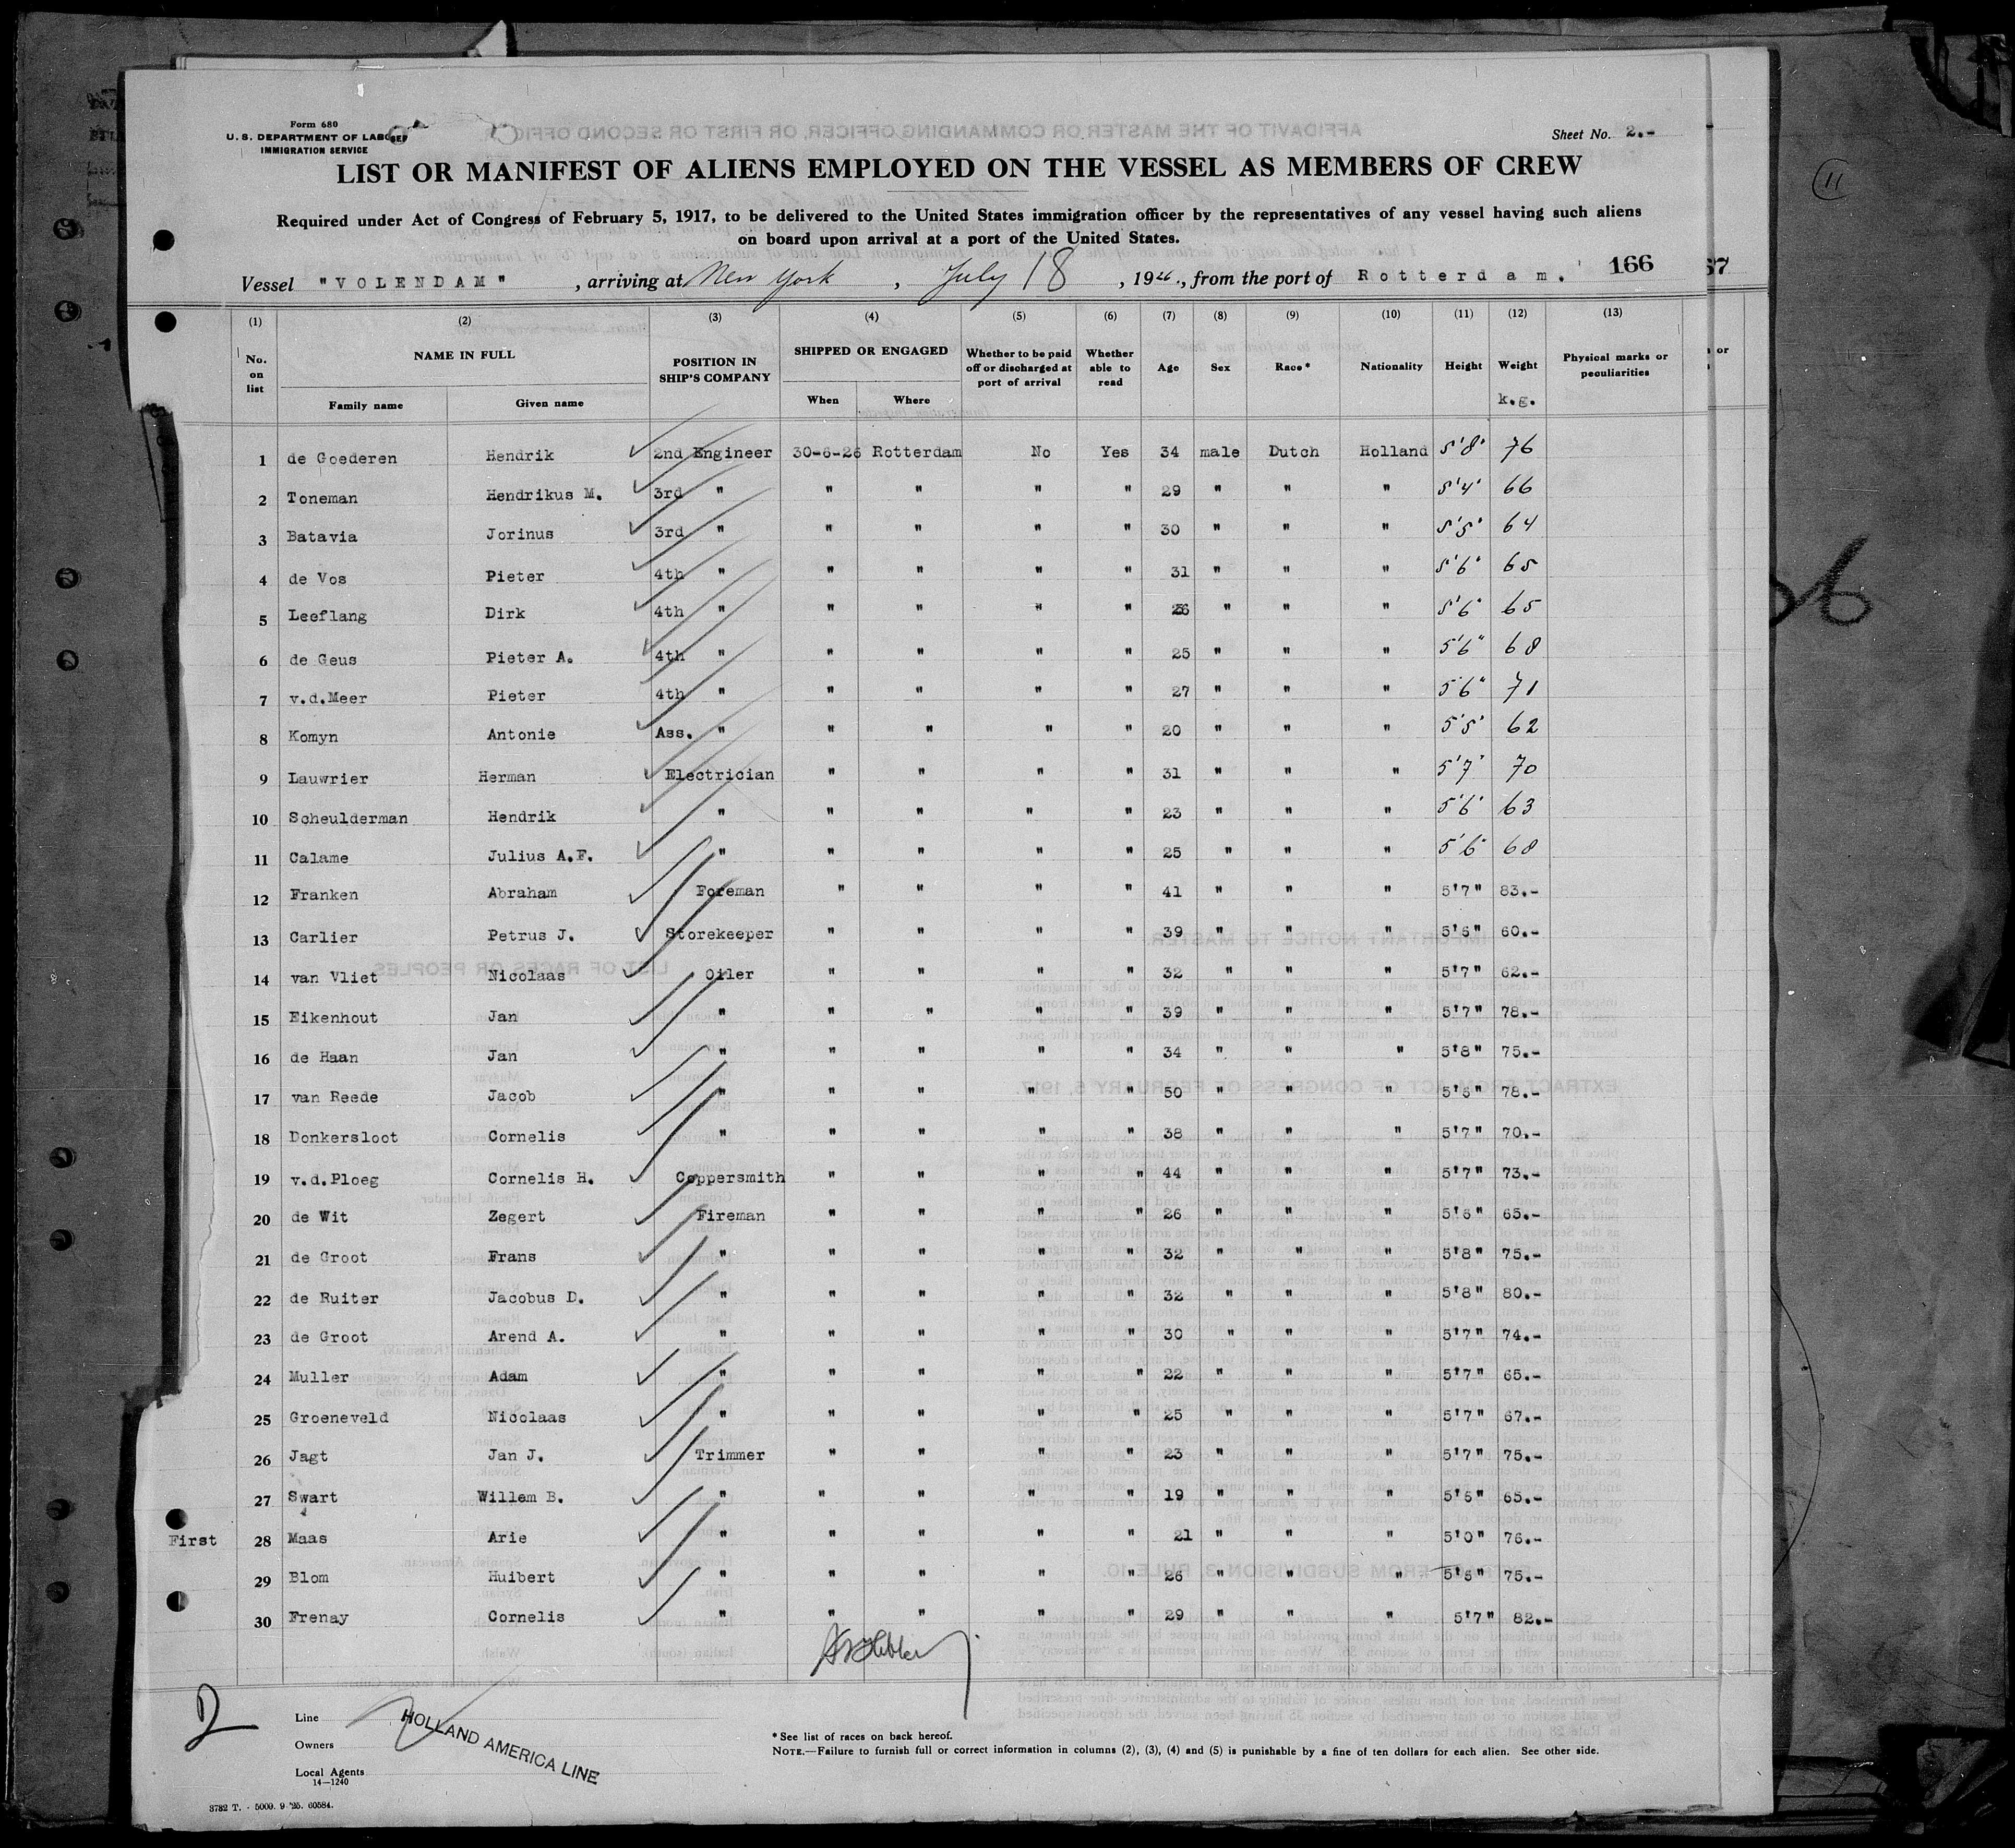 Form 680
U. S. DEPARTMENT OF LABOR
IMMIGRATION SERVICE
Sheet No. 2.-
LIST OR MANIFEST OF ALIENS EMPLOYED ON THE VESSEL AS MEMBERS OF CREW
Required under Act of Congress of February 5, 1917, to be delivered to the United States immigration officer by the representatives of any vessel having such aliens
on board upon arrival at a port of the United States.
166
Vessel "VOLENDAM" , arriving at New York , July 18 , 1926., from the port of Rotterdam.
(1) (2) (3) (4) (5) (6) (7) (8) (9) (10) (11) (12) (13)
No. on list NAME IN FULL Family name Given name POSITION IN SHIP'S COMPANY SHIPPED OR ENGAGED When Where Whether to be paid off or discharged at port of arrival Whether able to read Age Sex Race* Nationality Height Weight k.g. Physical marks or peculiarities
1 de Goederen Hendrik 2nd Engineer 30-6-26 Rotterdam No Yes 34 male Dutch Holland 5'8" 76
2 Toneman Hendrikus M. 3rd " " " " " 29 " " " 5'4" 66
3 Batavia Jorinus 3rd " " " " " 30 " " " 5'5" 64
4 de Vos Pieter 4th " " " " " 31 " " " 5'6" 65
5 Leeflang Dirk 4th " " " " " 26 " " " 5'6" 65
6 de Geus Pieter A. 4th " " " " " 25 " " " 5'6" 68
7 v.d.Meer Pieter 4th " " " " " 27 " " " 5'6" 71
8 Komyn Antonie Ass. " " " " " 20 " " " 5'5" 62
9 Lauwrier Herman Electrician " " " " 31 " " " 5'7" 70
10 Scheulderman Hendrik " " " " " 23 " " " 5'6" 63
11 Calame Julius A.F. " " " " " 25 " " " 5'6" 68
12 Franken Abraham Foreman " " " " 41 " " " 5'7" 83.-
13 Carlier Petrus J. Storekeeper " " " " 39 " " " 5'5" 60.-
14 van Vliet Nicolaas Oiler " " " " 32 " " " 5'7" 62.-
15 Eikenhout Jan " " " " " 39 " " " 5'7" 78.-
16 de Haan Jan " " " " " 34 " " " 5'8" 75.-
17 van Reede Jacob " " " " " 50 " " " 5'5" 78.-
18 Donkersloot Cornelis " " " " " 38 " " " 5'7" 70.-
19 v.d.Ploeg Cornelis H. Coppersmith " " " " 44 " " " 5'7" 73.-
20 de Wit Zegert Fireman " " " " 26 " " " 5'6" 65.-
21 de Groot Frans " " " " " 32 " " " 5'8" 75.-
22 de Ruiter Jacobus D. " " " " " 32 " " " 5'8" 80.-
23 de Groot Arend A. " " " " " 30 " " " 5'7" 74.-
24 Muller Adam " " " " " 22 " " " 5'7" 65.-
25 Groeneveld Nicolaas " " " " " 25 " " " 5'7" 67.-
26 Jagt Jan J. Trimmer " " " " 23 " " " 5'7" 75.-
27 Swart Willem B. " " " " " 19 " " " 5'5" 65.-
First 28 Maas Arie " " " " " 21 " " " 5'0" 76.-
29 Blom Huibert " " " " " 26 " " " 5'5" 75.-
30 Frenay Cornelis " " " " " 29 " " " 5'7" 82.-
2
Line
Owners
Local Agents
HOLLAND AMERICA LINE
14—1240
* See list of races on back hereof.
NOTE.—Failure to furnish full or correct information in columns (2), (3), (4) and (5) is punishable by a fine of ten dollars for each alien. See other side.
3782 T. - 5000. 9 '25. 60584.
11